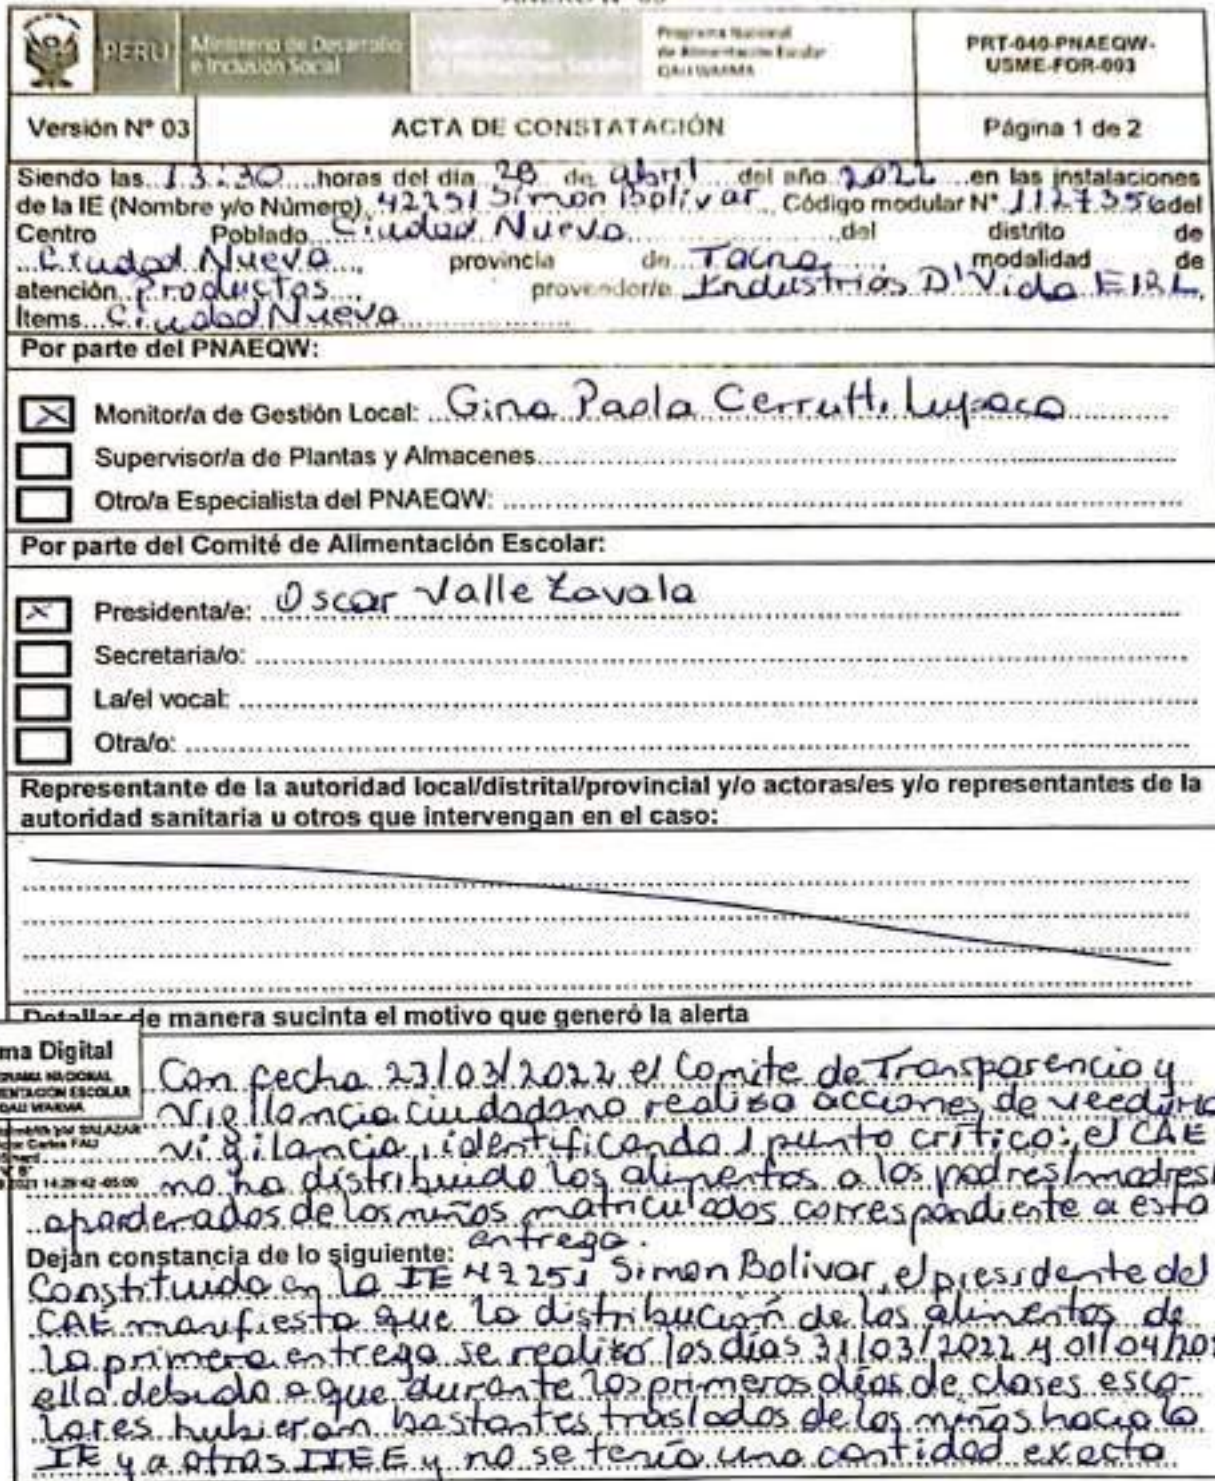 PERÚ
Ministerio de Desarrollo
e Inclusión Social
Programa Nacional
de Alimentación Escolar
QALI WARMA
PRT-040-PNAEQW-
USME-FOR-003
Versión N° 03
ACTA DE CONSTATACIÓN
Página 1 de 2
Siendo las 13:30 horas del día 28 de abril del año 2022 en las instalaciones
de la IE (Nombre y/o Número) 42251 Simon Bolívar Código modular N° 1127356 del
Centro Poblado Ciudad Nueva del distrito de
Ciudad Nueva provincia de Tacna modalidad de
atención Productos proveedor/a Industrias D'Vida EIRL
Ítems Ciudad Nueva
Por parte del PNAEQW:
Monitor/a de Gestión Local: Gina Paola Cerrutti Lupaca
Supervisor/a de Plantas y Almacenes
Otro/a Especialista del PNAEQW:
Por parte del Comité de Alimentación Escolar:
Presidenta/e: Oscar Valle Zavala
Secretaria/o:
La/el vocal:
Otra/o:
Representante de la autoridad local/distrital/provincial y/o actoras/es y/o representantes de la
autoridad sanitaria u otros que intervengan en el caso:
Detallar de manera sucinta el motivo que generó la alerta
ma Digital
Con fecha 23/03/2022 el Comite de Transparencia y
Vigilancia ciudadana realiza acciones de veeduría
vigilancia, identificando 1 punto crítico: el CAE
14:29:42 -05:00
no ha distribuido los alimentos a los padres/madres/
aparderados de los niños matriculados correspondiente a esta
entrega.
Dejan constancia de lo siguiente:
Constituida en la IE 42251 Simon Bolivar, el presidente del
CAE manifiesta que la distribución de los alimentos de
la primera entrega se realizó los días 31/03/2022 y 01/04/202
ello debido a que durante los primeros días de clases esco-
lares hubieron bastantes traslados de los niños hacia la
IE y a otras IIEE y no se tenía una cantidad exacta